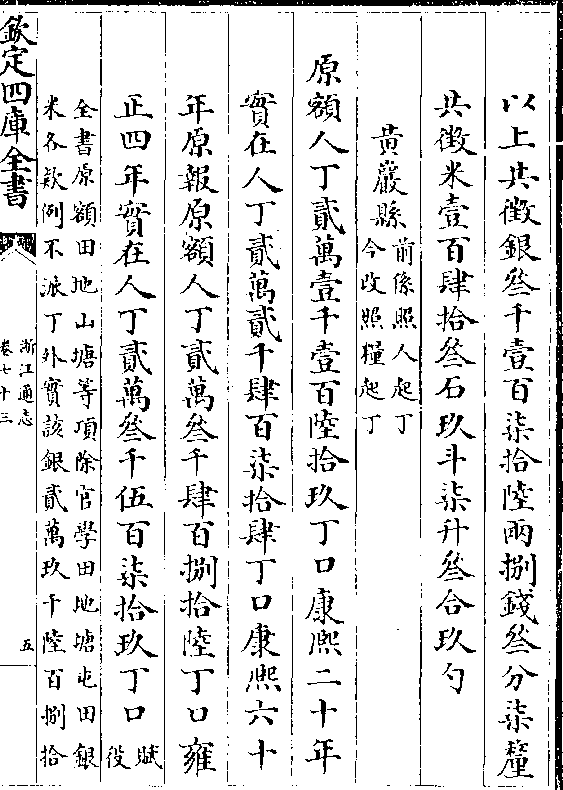 以上共徵銀叁千壹百柒拾陸兩捌錢叁分柒釐
共徵米壹百肆拾叁石玖斗柒升叁合玖勺
黄巖縣前係照人起丁
今改照糧起丁
原額人丁貳萬壹千壹百陸拾玖丁口康熙二十年
實在人丁貳萬貳千肆百柒拾肆丁口康熙六十
年原報原額人丁貳萬叁千肆百捌拾陸丁口雍
正四年實在人丁貳萬叁千伍百柒拾玖丁口賦
役
全書原額田地山塘等項除官學田地塘屯田銀
米各欵例不派丁外實該銀貳萬玖千陸百捌拾
欽定四庫全書
浙江通志
卷七十三
五